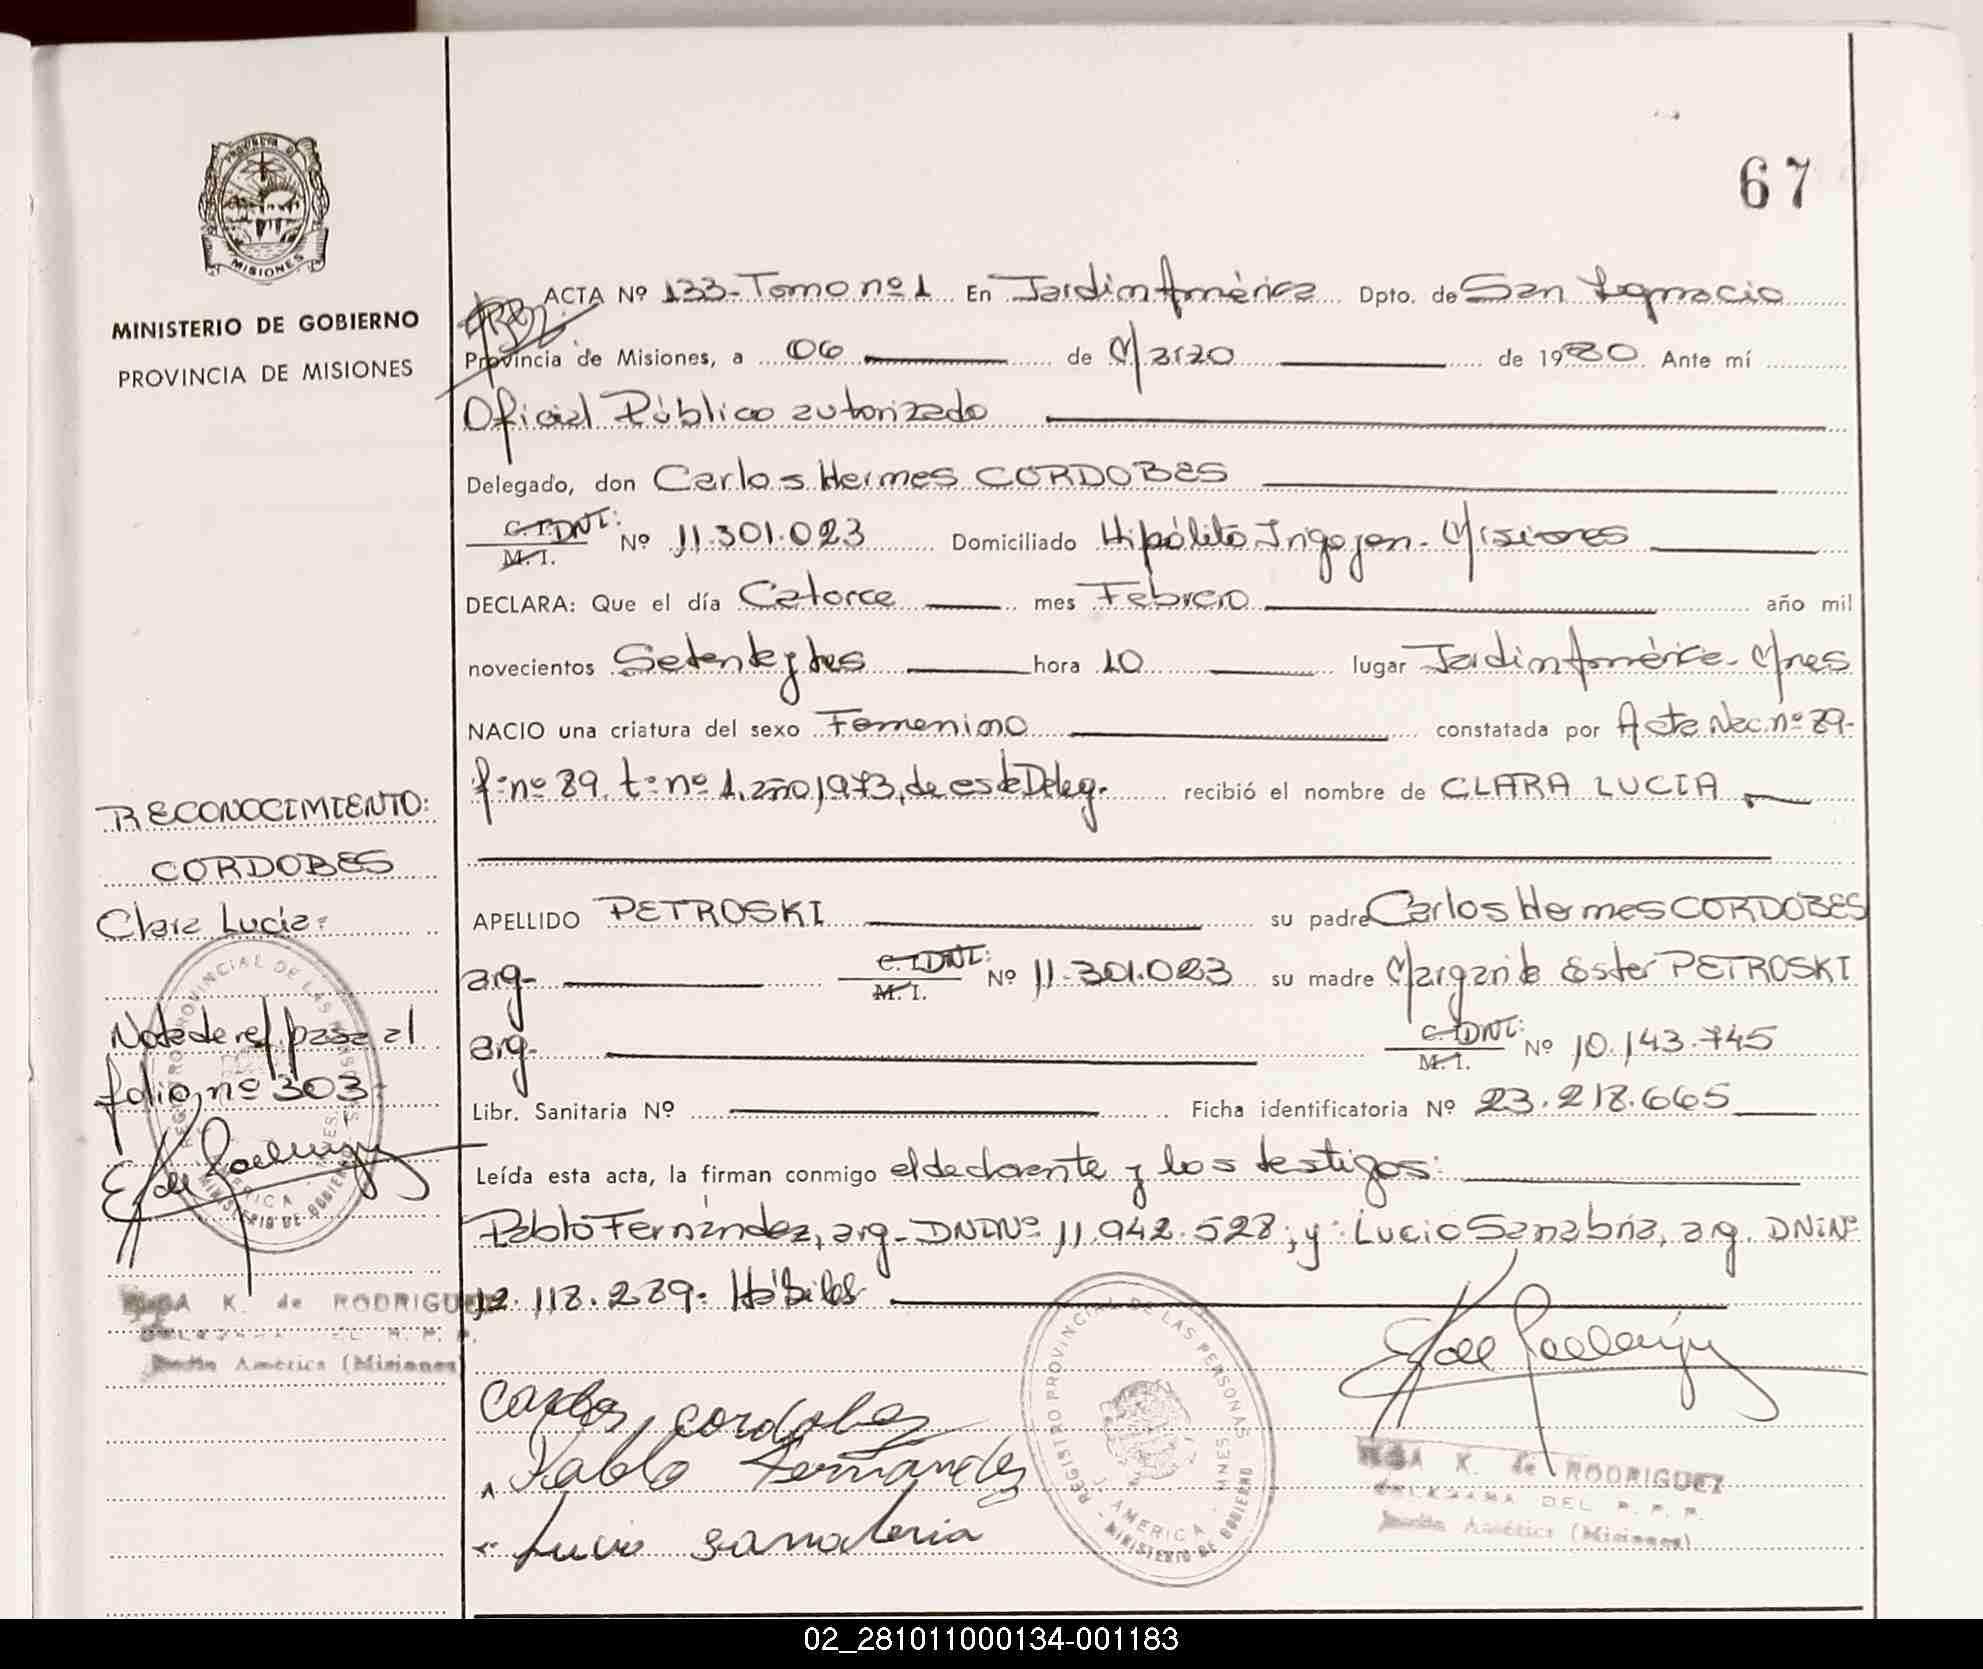 67
PROVINCIA DE
MISIONES
MINISTERIO DE GOBIERNO
PROVINCIA DE MISIONES
ACTA Nº 133-Tomo nº 1 En Jardin América Dpto. de San Ignacio
Provincia de Misiones, a 06 de Marzo de 1980. Ante mí
Oficial Público autorizado
Delegado, don Carlos Hermes CORDOBES
C. I. DNI:
M. I. Nº 11.301.023 Domiciliado Hipólito Irigoyen - Misiones
DECLARA: Que el día Catorce mes Febrero año mil
novecientos Setenta y tres hora 10 lugar Jardin América - Mnes
NACIO una criatura del sexo Femenino constatada por Acta Nac. nº 89-
fº nº 89. tº nº 1. año 1973, de esta Deleg. recibió el nombre de CLARA LUCIA
APELLIDO PETROSKI su padre Carlos Hermes CORDOBES
arg- C. I. DNI:
M. I. Nº 11.301.023 su madre Margarita Ester PETROSKI
arg- C. I. DNI:
M. I. Nº 10.143.745
Libr. Sanitaria Nº Ficha identificatoria Nº 23.218.665
Leída esta acta, la firman conmigo el declarante y los testigos:
Pablo Fernández, arg- DNI Nº 11.942.528; y: Lucio Sanabria, arg. DNI Nº
12.118.289. Hábiles
Carlos, cordobes
Pablo Fernandez
Lucio sanabria
REGISTRO PROVINCIAL DE LAS PERSONAS
AMERICA - MNES
MINISTERIO DE GOBIERNO
K. de RODRIGUEZ
DELEGADA DEL R. P. P.
Jardín América (Misiones)
RECONOCIMIENTO:
CORDOBES
Clara Lucia:
Nota de ref. pasa al
folio nº 303
REGISTRO PROVINCIAL DE LAS PERSONAS
AMERICA - MNES
MINISTERIO DE GOBIERNO
K. de RODRIGUEZ
DELEGADA DEL R. P. P.
Jardín América (Misiones)
02_281011000134-001183